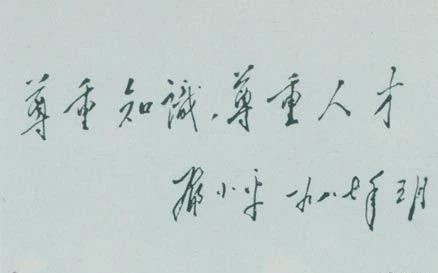 尊重知識,尊重人才
鄧小平 一九八七年五月